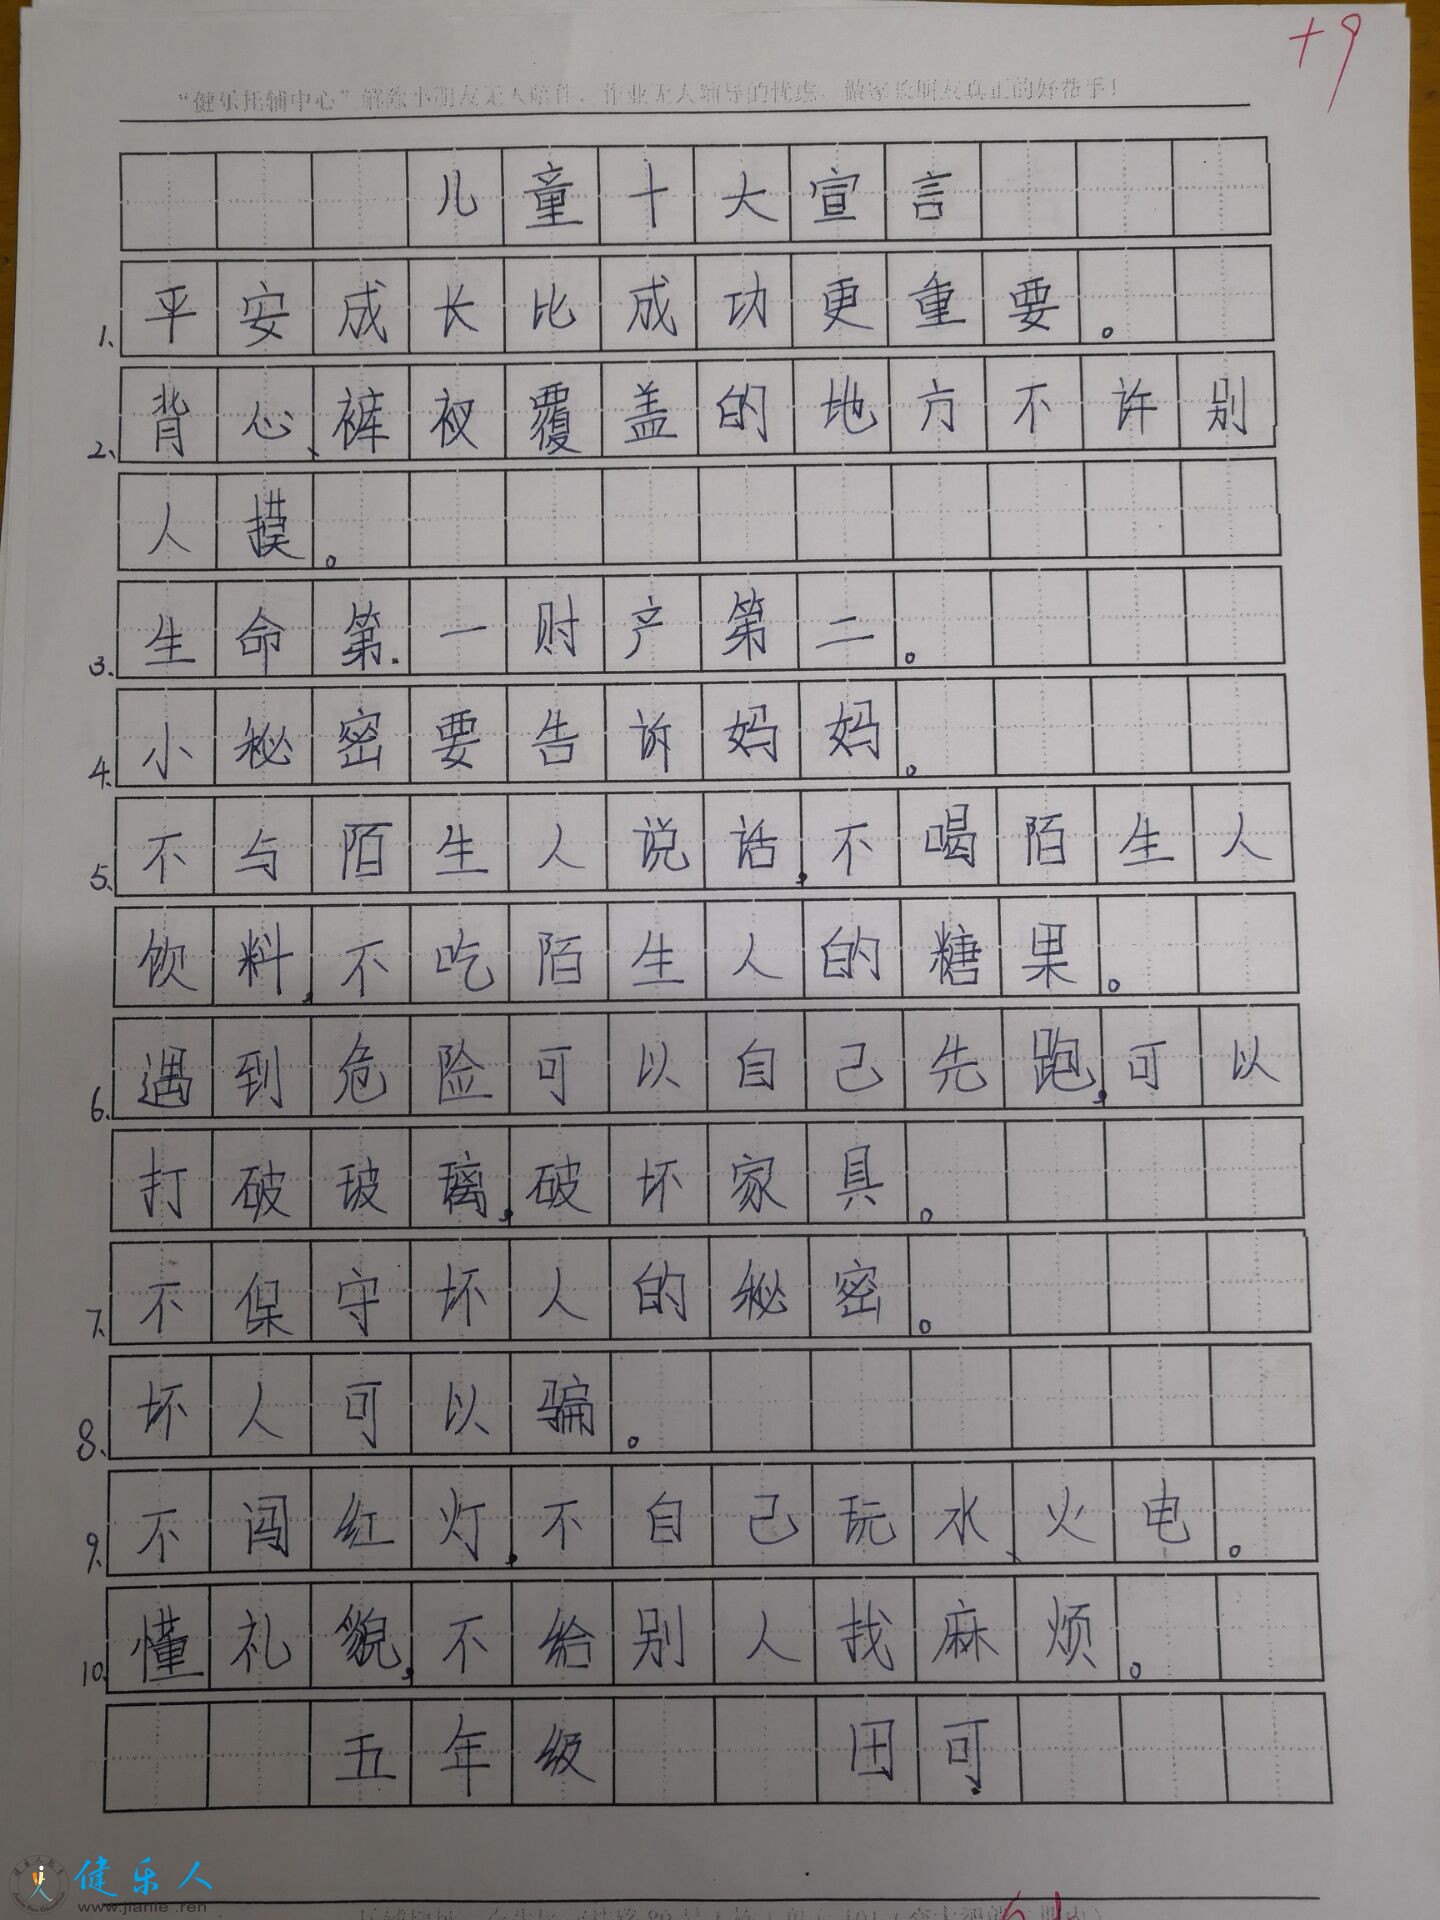 +9
"健乐托辅中心"解除小朋友无人陪伴、作业无人辅导的忧虑、做家长朋友真正的好帮手！
儿童十大宣言
1、平安成长比成功更重要。
2、背心、裤衩覆盖的地方不许别
人摸。
3、生命第一财产第二。
4、小秘密要告诉妈妈。
5、不与陌生人说话，不喝陌生人
饮料，不吃陌生人的糖果。
6、遇到危险可以自己先跑，可以
打破玻璃，破坏家具。
7、不保守坏人的秘密。
8、坏人可以骗。
9、不闯红灯，不自己玩水、火电。
10、懂礼貌，不给别人找麻烦。
五年级 田可
健乐人
www.jianle.ren